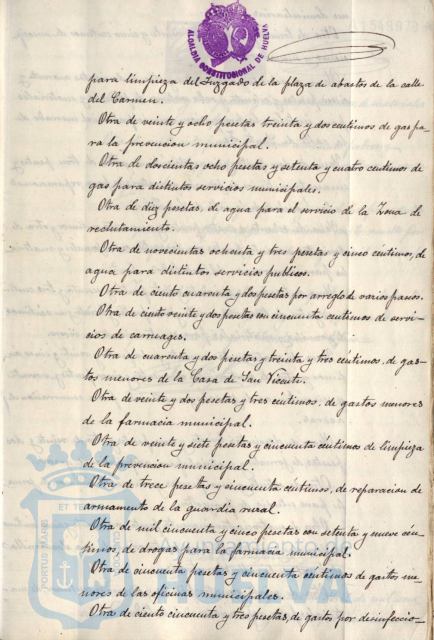 ALCALDIA CONSTITUCIONAL DE HUELVA
para limpieza del Juzgado de la plaza de abastos de la calle
del Carmen.
Otra de veinte y ocho pesetas treinta y dos centimos de gas pa-
ra la prevencion municipal.
Otra de doscientas ocho pesetas y setenta y cuatro centimos de
gas para distintos servicios municipales.
Otra de diez pesetas, de agua para el servicio de la Zona de
reclutamiento.
Otra de novecientas ochenta y tres pesetas y cinco centimos, de
agua para distintos servicios publicos.
Otra de ciento cuarenta y dos pesetas por arreglo de varios paseos.
Otra de ciento veinte y dos pesetas con cincuenta centimos de servi-
cios de carruages.
Otra de cuarenta y dos pesetas y treinta y tres centimos, de gas-
tos menores de la Casa de San Vicente.
Otra de veinte y dos pesetas y tres centimos, de gastos menores
de la farmacia municipal.
Otra de veinte y siete pesetas y cincuenta centimos de limpieza
de la prevencion municipal.
Otra de trece pesetas y cincuenta centimos, de reparacion de
armamento de la guardia rural.
Otra de mil cincuenta y cinco pesetas con setenta y nueve cen-
timos, de drogas para la farmacia municipal.
Otra de cincuenta pesetas y cincuenta centimos de gastos me-
nores de las oficinas municipales.
Otra de ciento cincuenta y tres pesetas, de gastos por desinfeccio-
PORTUS MARIS ET TE